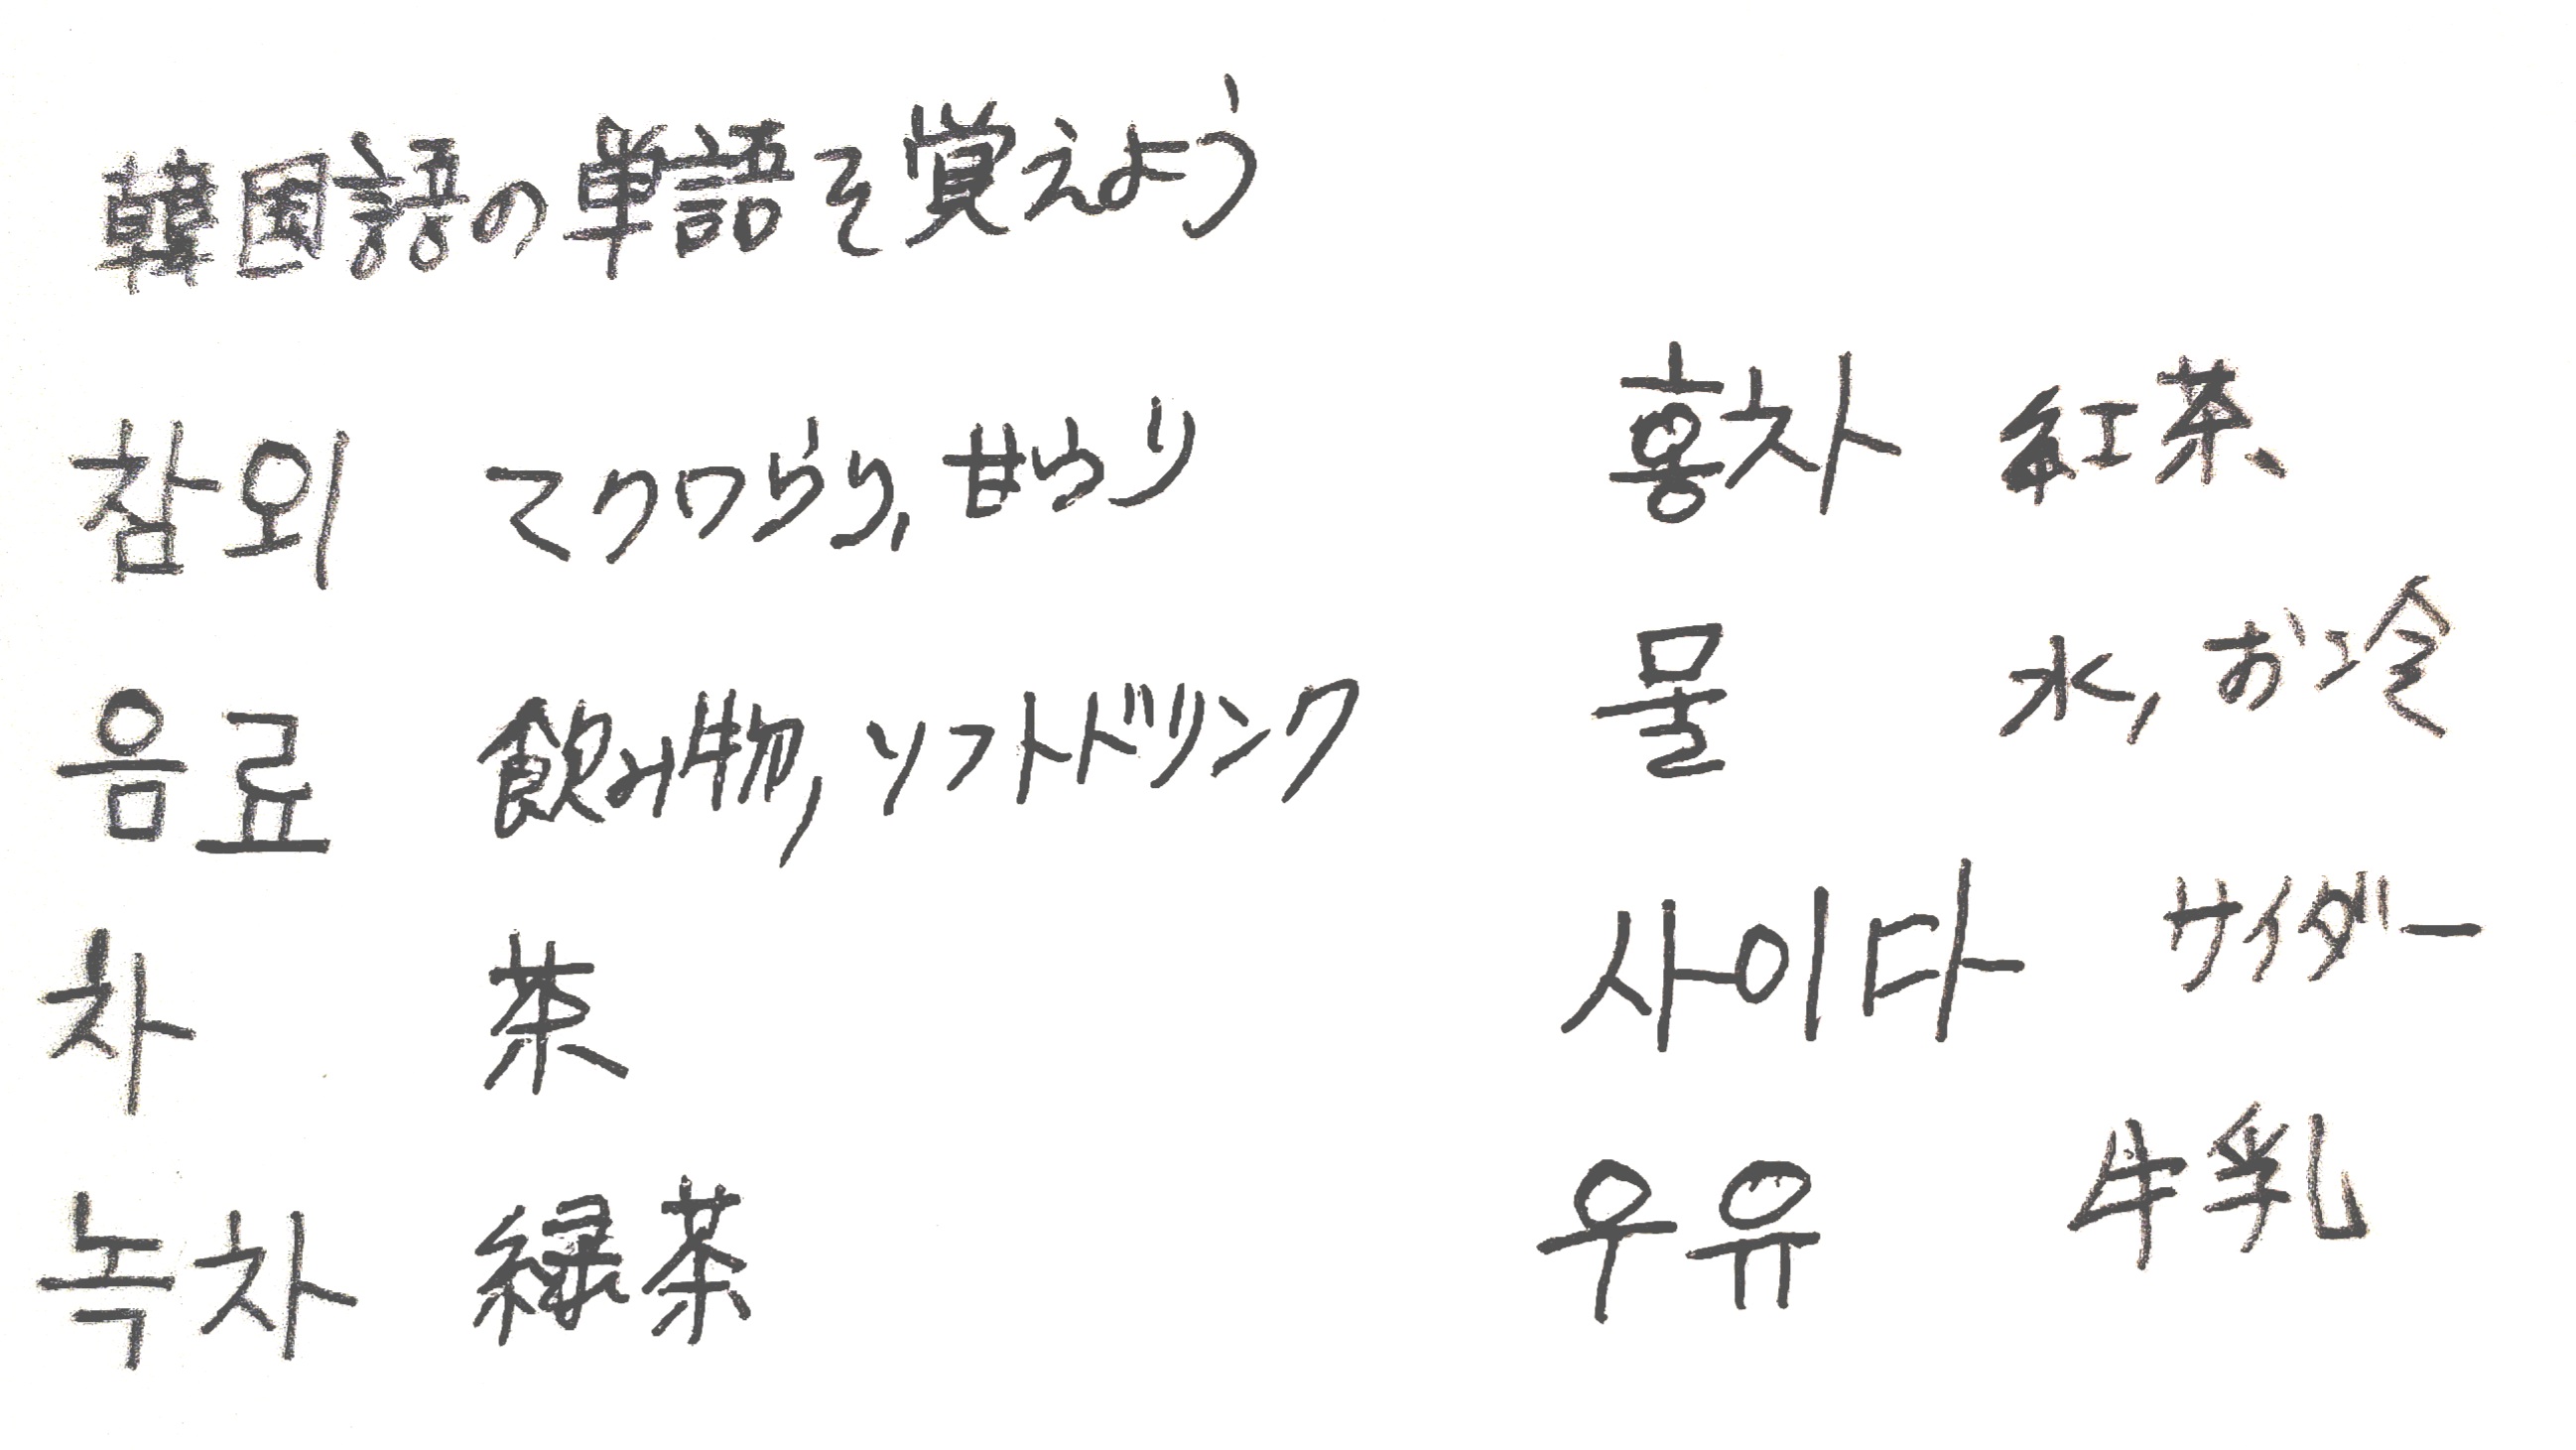 韓国語の単語を覚えよう
참외 マクワうり,甘うり
음료 飲み物,ソフトドリンク
차 茶
녹차 緑茶
홍차 紅茶、
물 水,お冷
사이다 サイダー
우유 牛乳